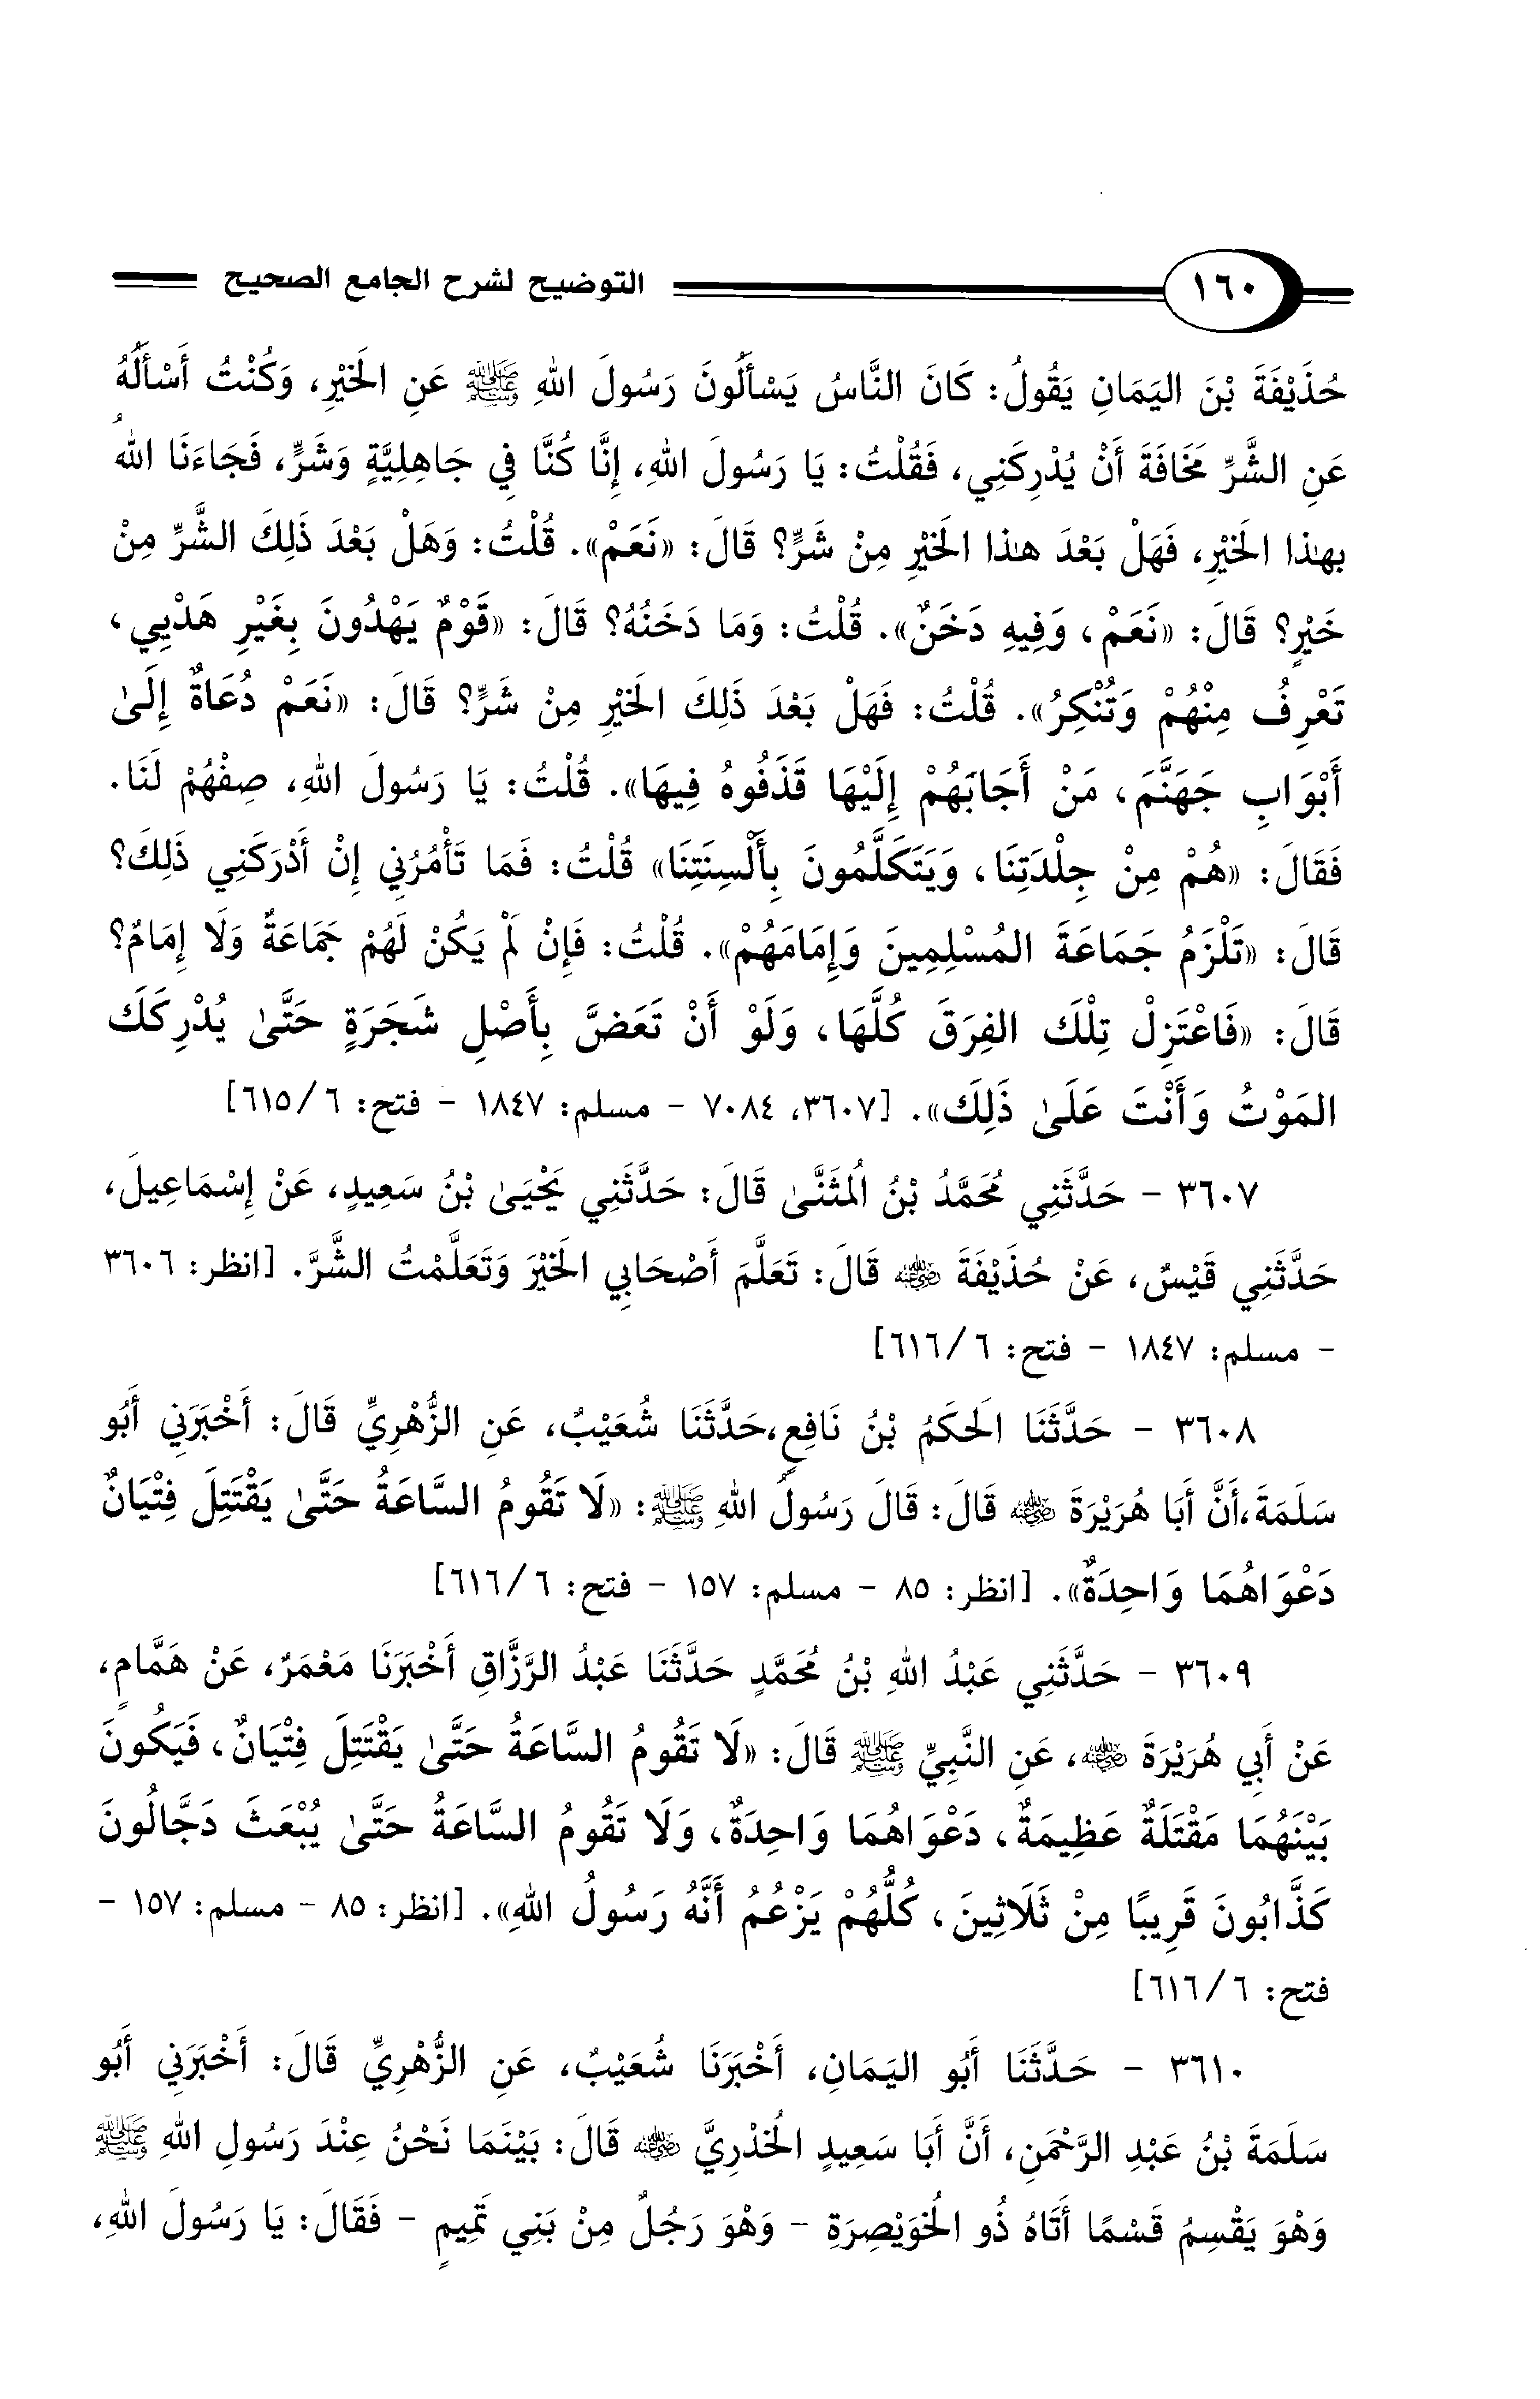 ١٦٠ التوضيح لشرح الجامع الصحيح
حُذَيْفَةَ بْنَ اليَمَانِ يَقُولُ: كَانَ النَّاسُ يَسْأَلُونَ رَسُولَ اللهِ ﷺ عَنِ الَخيْرِ، وَكُنْتُ أَسْأَلُهُ
عَنِ الشَّرِّ مَخَافَةَ أَنْ يُدْرِكَنِي، فَقُلْتُ: يَا رَسُولَ اللهِ، إِنَّا كُنَّا فِي جَاهِلِيَّةٍ وَشَرٍّ، فَجَاءَنَا اللهُ
بهذا الَخيْرِ، فَهَلْ بَعْدَ هذا الَخيْرِ مِنْ شَرٍّ؟ قَالَ: «نَعَمْ». قُلْتُ: وَهَلْ بَعْدَ ذَلِكَ الشَّرِّ مِنْ
خَيْرٍ؟ قَالَ: «نَعَمْ، وَفِيهِ دَخَنٌ». قُلْتُ: وَمَا دَخَنُهُ؟ قَالَ: «قَوْمٌ يَهْدُونَ بِغَيْرِ هَدْيِي،
تَعْرِفُ مِنْهُمْ وَتُنْكِرُ». قُلْتُ: فَهَلْ بَعْدَ ذَلِكَ الَخيْرِ مِنْ شَرٍّ؟ قَالَ: «نَعَمْ دُعَاةٌ إِلَىٰ
أَبْوَابِ جَهَنَّمَ، مَنْ أَجَابَهُمْ إِلَيْهَا قَذَفُوهُ فِيهَا». قُلْتُ: يَا رَسُولَ اللهِ، صِفْهُمْ لَنَا.
فَقَالَ: «هُمْ مِنْ جِلْدَتِنَا، وَيَتَكَلَّمُونَ بِأَلْسِنَتِنَا» قُلْتُ: فَمَا تَأْمُرُنِي إِنْ أَدْرَكَنِي ذَلِكَ؟
قَالَ: «تَلْزَمُ جَمَاعَةَ المُسْلِمِينَ وَإِمَامَهُمْ». قُلْتُ: فَإِنْ لَمْ يَكُنْ لَهُمْ جَمَاعَةٌ وَلَا إِمَامٌ؟
قَالَ: «فَاعْتَزِلْ تِلْكَ الفِرَقَ كُلَّهَا، وَلَوْ أَنْ تَعَضَّ بِأَصْلِ شَجَرَةٍ حَتَّىٰ يُدْرِكَكَ
المَوْتُ وَأَنْتَ عَلَىٰ ذَلِكَ». [٣٦٠٧، ٧٠٨٤ - مسلم: ١٨٤٧ - فتح: ٦/ ٦١٥]
٣٦٠٧ - حَدَّثَنِي مُحَمَّدُ بْنُ الُمثَنَّىٰ قَالَ: حَدَّثَنِي يَحْيَىٰ بْنُ سَعِيدٍ، عَنْ إِسْمَاعِيلَ،
حَدَّثَنِي قَيْسٌ، عَنْ حُذَيْفَةَ ﵁ قَالَ: تَعَلَّمَ أَصْحَابِي الَخيْرَ وَتَعَلَّمْتُ الشَّرَّ. [انظر: ٣٦٠٦
- مسلم: ١٨٤٧ - فتح: ٦/ ٦١٦]
٣٦٠٨ - حَدَّثَنَا الَحكَمُ بْنُ نَافِعٍ،حَدَّثَنَا شُعَيْبٌ، عَنِ الزُّهْرِيِّ قَالَ: أَخْبَرَنِي أَبُو
سَلَمَةَ،أَنَّ أَبَا هُرَيْرَةَ ﵁ قَالَ: قَالَ رَسُولُ اللهِ ﷺ: «لَا تَقُومُ السَّاعَةُ حَتَّىٰ يَقْتَتِلَ فِتْيَانٌ
دَعْوَاهُمَا وَاحِدَةٌ». [انظر: ٨٥ - مسلم: ١٥٧ - فتح: ٦/ ٦١٦]
٣٦٠٩ - حَدَّثَنِي عَبْدُ اللهِ بْنُ مُحَمَّدٍ حَدَّثَنَا عَبْدُ الرَّزَّاقِ أَخْبَرَنَا مَعْمَرٌ، عَنْ هَمَّامٍ،
عَنْ أَبِي هُرَيْرَةَ ﵁، عَنِ النَّبِيِّ ﷺ قَالَ: «لَا تَقُومُ السَّاعَةُ حَتَّىٰ يَقْتَتِلَ فِتْيَانٌ، فَيَكُونَ
بَيْنَهُمَا مَقْتَلَةٌ عَظِيمَةٌ، دَعْوَاهُمَا وَاحِدَةٌ، وَلَا تَقُومُ السَّاعَةُ حَتَّىٰ يُبْعَثَ دَجَّالُونَ
كَذَّابُونَ قَرِيبًا مِنْ ثَلَاثِينَ، كُلُّهُمْ يَزْعُمُ أَنَّهُ رَسُولُ اللهِ». [انظر: ٨٥ - مسلم: ١٥٧ -
فتح: ٦/ ٦١٦]
٣٦١٠ - حَدَّثَنَا أَبُو اليَمَانِ، أَخْبَرَنَا شُعَيْبٌ، عَنِ الزُّهْرِيِّ قَالَ: أَخْبَرَنِي أَبُو
سَلَمَةَ بْنُ عَبْدِ الرَّحْمَنِ، أَنَّ أَبَا سَعِيدٍ الُخدْرِيَّ ﵁ قَالَ: بَيْنَمَا نَحْنُ عِنْدَ رَسُولِ اللهِ ﷺ
وَهْوَ يَقْسِمُ قَسْمًا أَتَاهُ ذُو الُخوَيْصِرَةِ - وَهْوَ رَجُلٌ مِنْ بَنِي تَمِيمٍ - فَقَالَ: يَا رَسُولَ اللهِ،